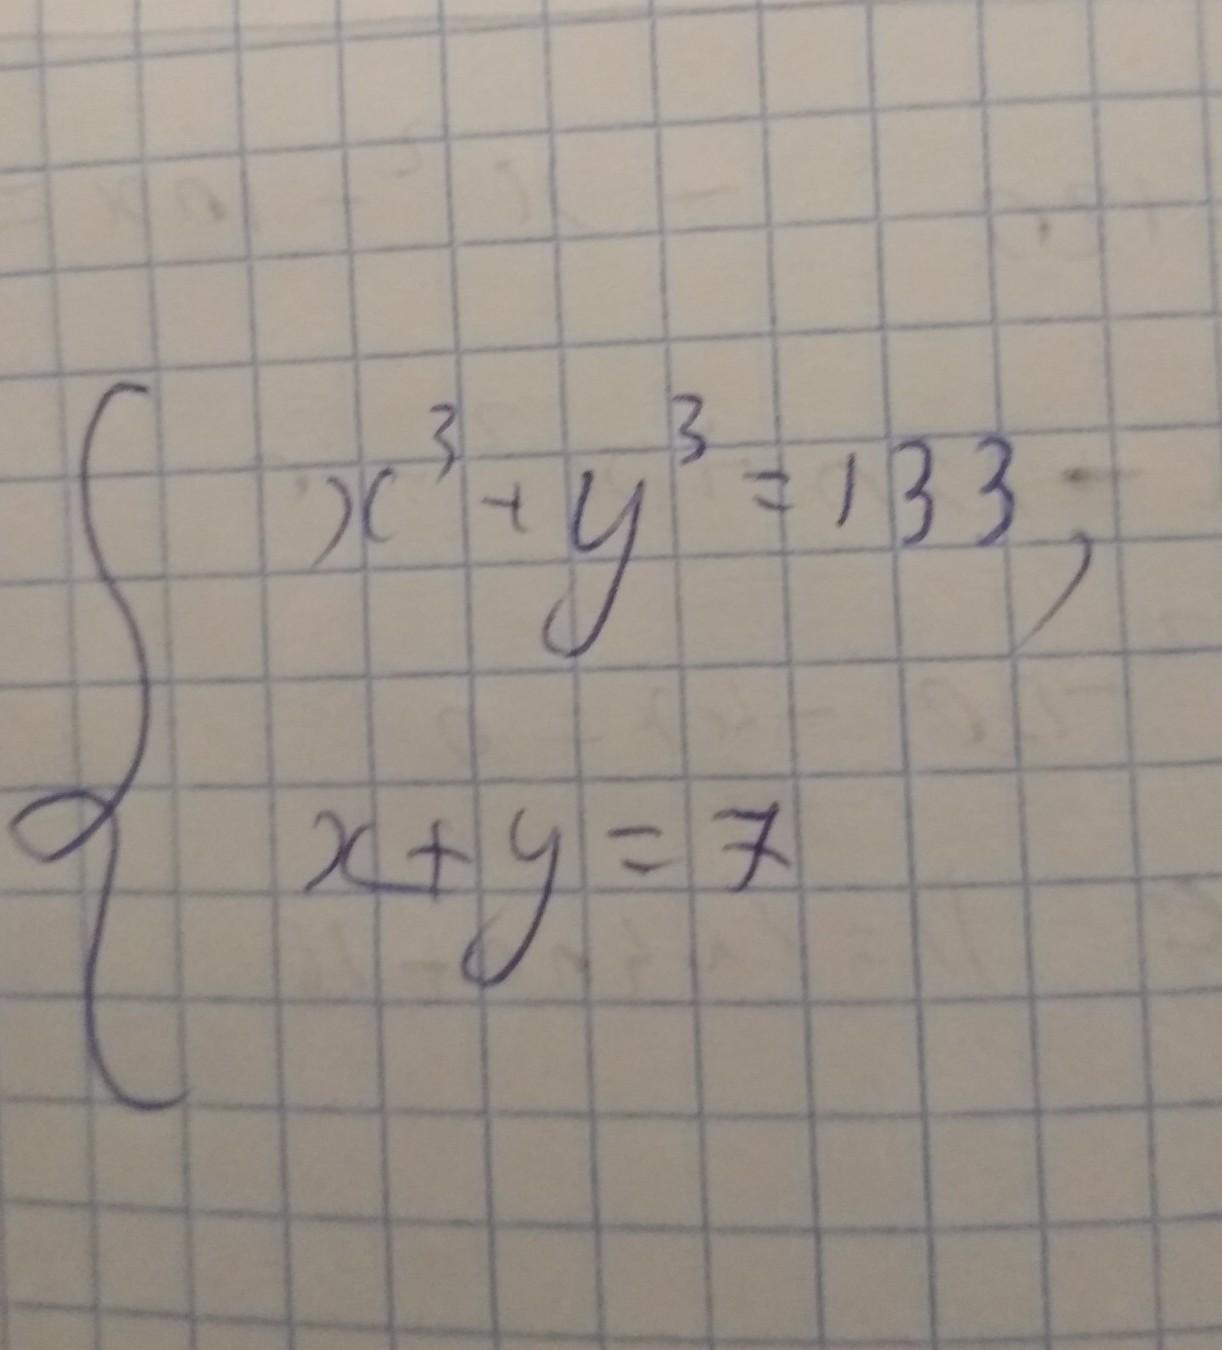 x³ + y³ = 133,
x + y = 7